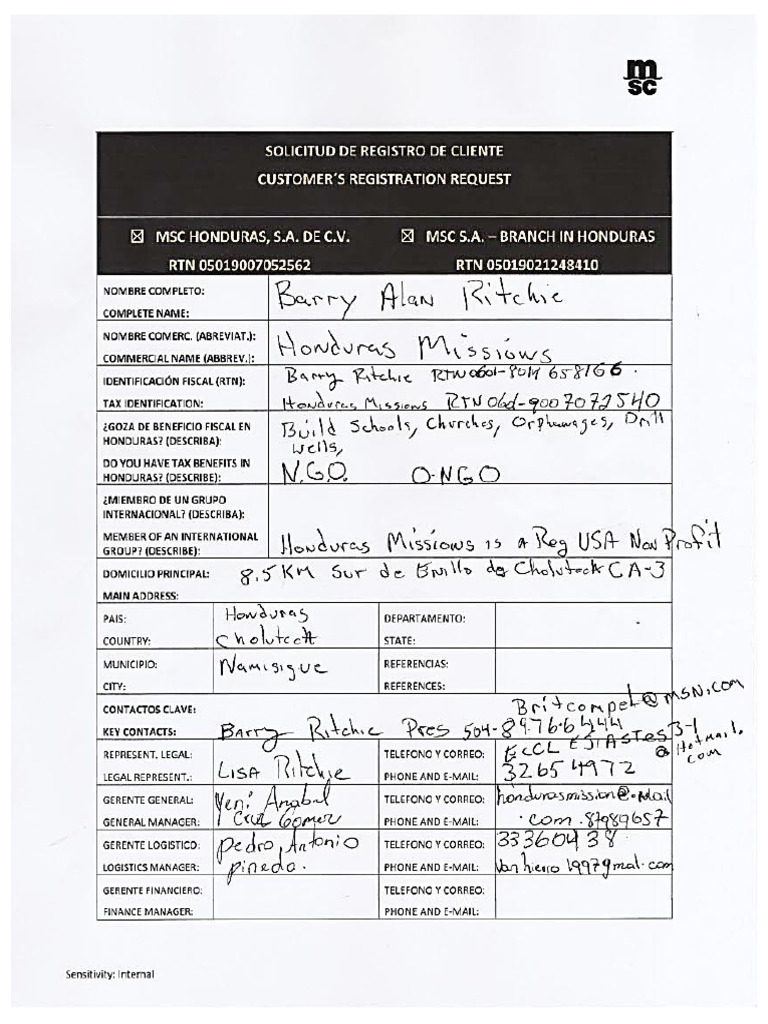 msc
SOLICITUD DE REGISTRO DE CLIENTE
CUSTOMER´S REGISTRATION REQUEST
☒ MSC HONDURAS, S.A. DE C.V. ☒ MSC S.A. – BRANCH IN HONDURAS
RTN 05019007052562 RTN 05019021248410
NOMBRE COMPLETO:
COMPLETE NAME: Barry Alan Ritchie
NOMBRE COMERC. (ABREVIAT.):
COMMERCIAL NAME (ABBREV.): Honduras Missions
IDENTIFICACIÓN FISCAL (RTN): Barry Ritchie RTN 0601-8014 658166
TAX IDENTIFICATION: Honduras Missions RTN 9007072540
¿GOZA DE BENEFICIO FISCAL EN Build Schools, Churches, Orphanages, Drill
HONDURAS? (DESCRIBA): wells,
DO YOU HAVE TAX BENEFITS IN N.G.O. O-NGO
HONDURAS? (DESCRIBE):
¿MIEMBRO DE UN GRUPO
INTERNACIONAL? (DESCRIBA):
MEMBER OF AN INTERNATIONAL
GROUP? (DESCRIBE): Honduras Missions is a Reg USA Non Profit
DOMICILIO PRINCIPAL: 8.5 KM Sur de de CA-3
MAIN ADDRESS:
PAIS: Honduras DEPARTAMENTO:
COUNTRY: STATE:
MUNICIPIO: Namisigue REFERENCIAS:
CITY: REFERENCES:
CONTACTOS CLAVE: Britcompet@msn.com
KEY CONTACTS: Barry Ritchie Pres 504-89766444
REPRESENT. LEGAL: TELEFONO Y CORREO: ECCLESIASTES3-1
@Hotmail.
com
LEGAL REPRESENT.: Lisa Ritchie PHONE AND E-MAIL: 32654972
GERENTE GENERAL: Yeni Anabal TELEFONO Y CORREO:
GENERAL MANAGER: Cruz Gomez PHONE AND E-MAIL: .com 87989657
GERENTE LOGISTICO: Pedro Antonio TELEFONO Y CORREO: 33360438
LOGISTICS MANAGER: pineda. PHONE AND E-MAIL:
GERENTE FINANCIERO: TELEFONO Y CORREO:
FINANCE MANAGER: PHONE AND E-MAIL:
Sensitivity: Internal